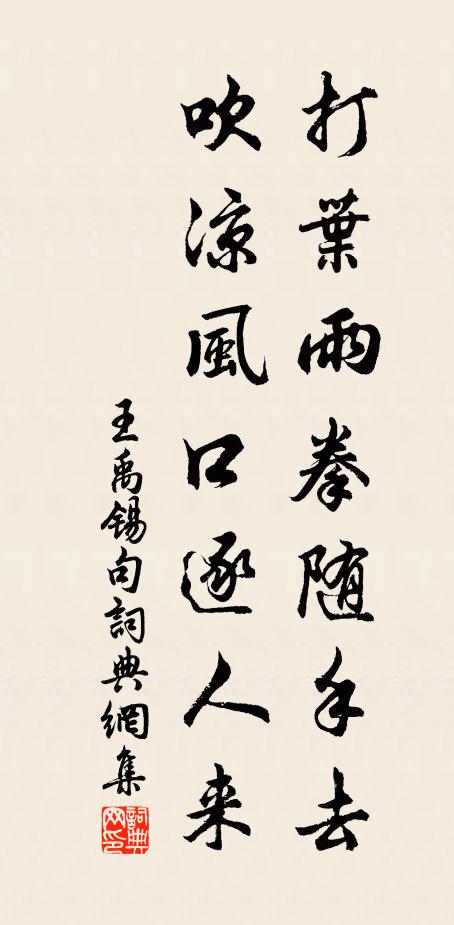 打葉雨拳随手去
吹凉風口逐人来
王禹锡句詞典網集
詞典網印